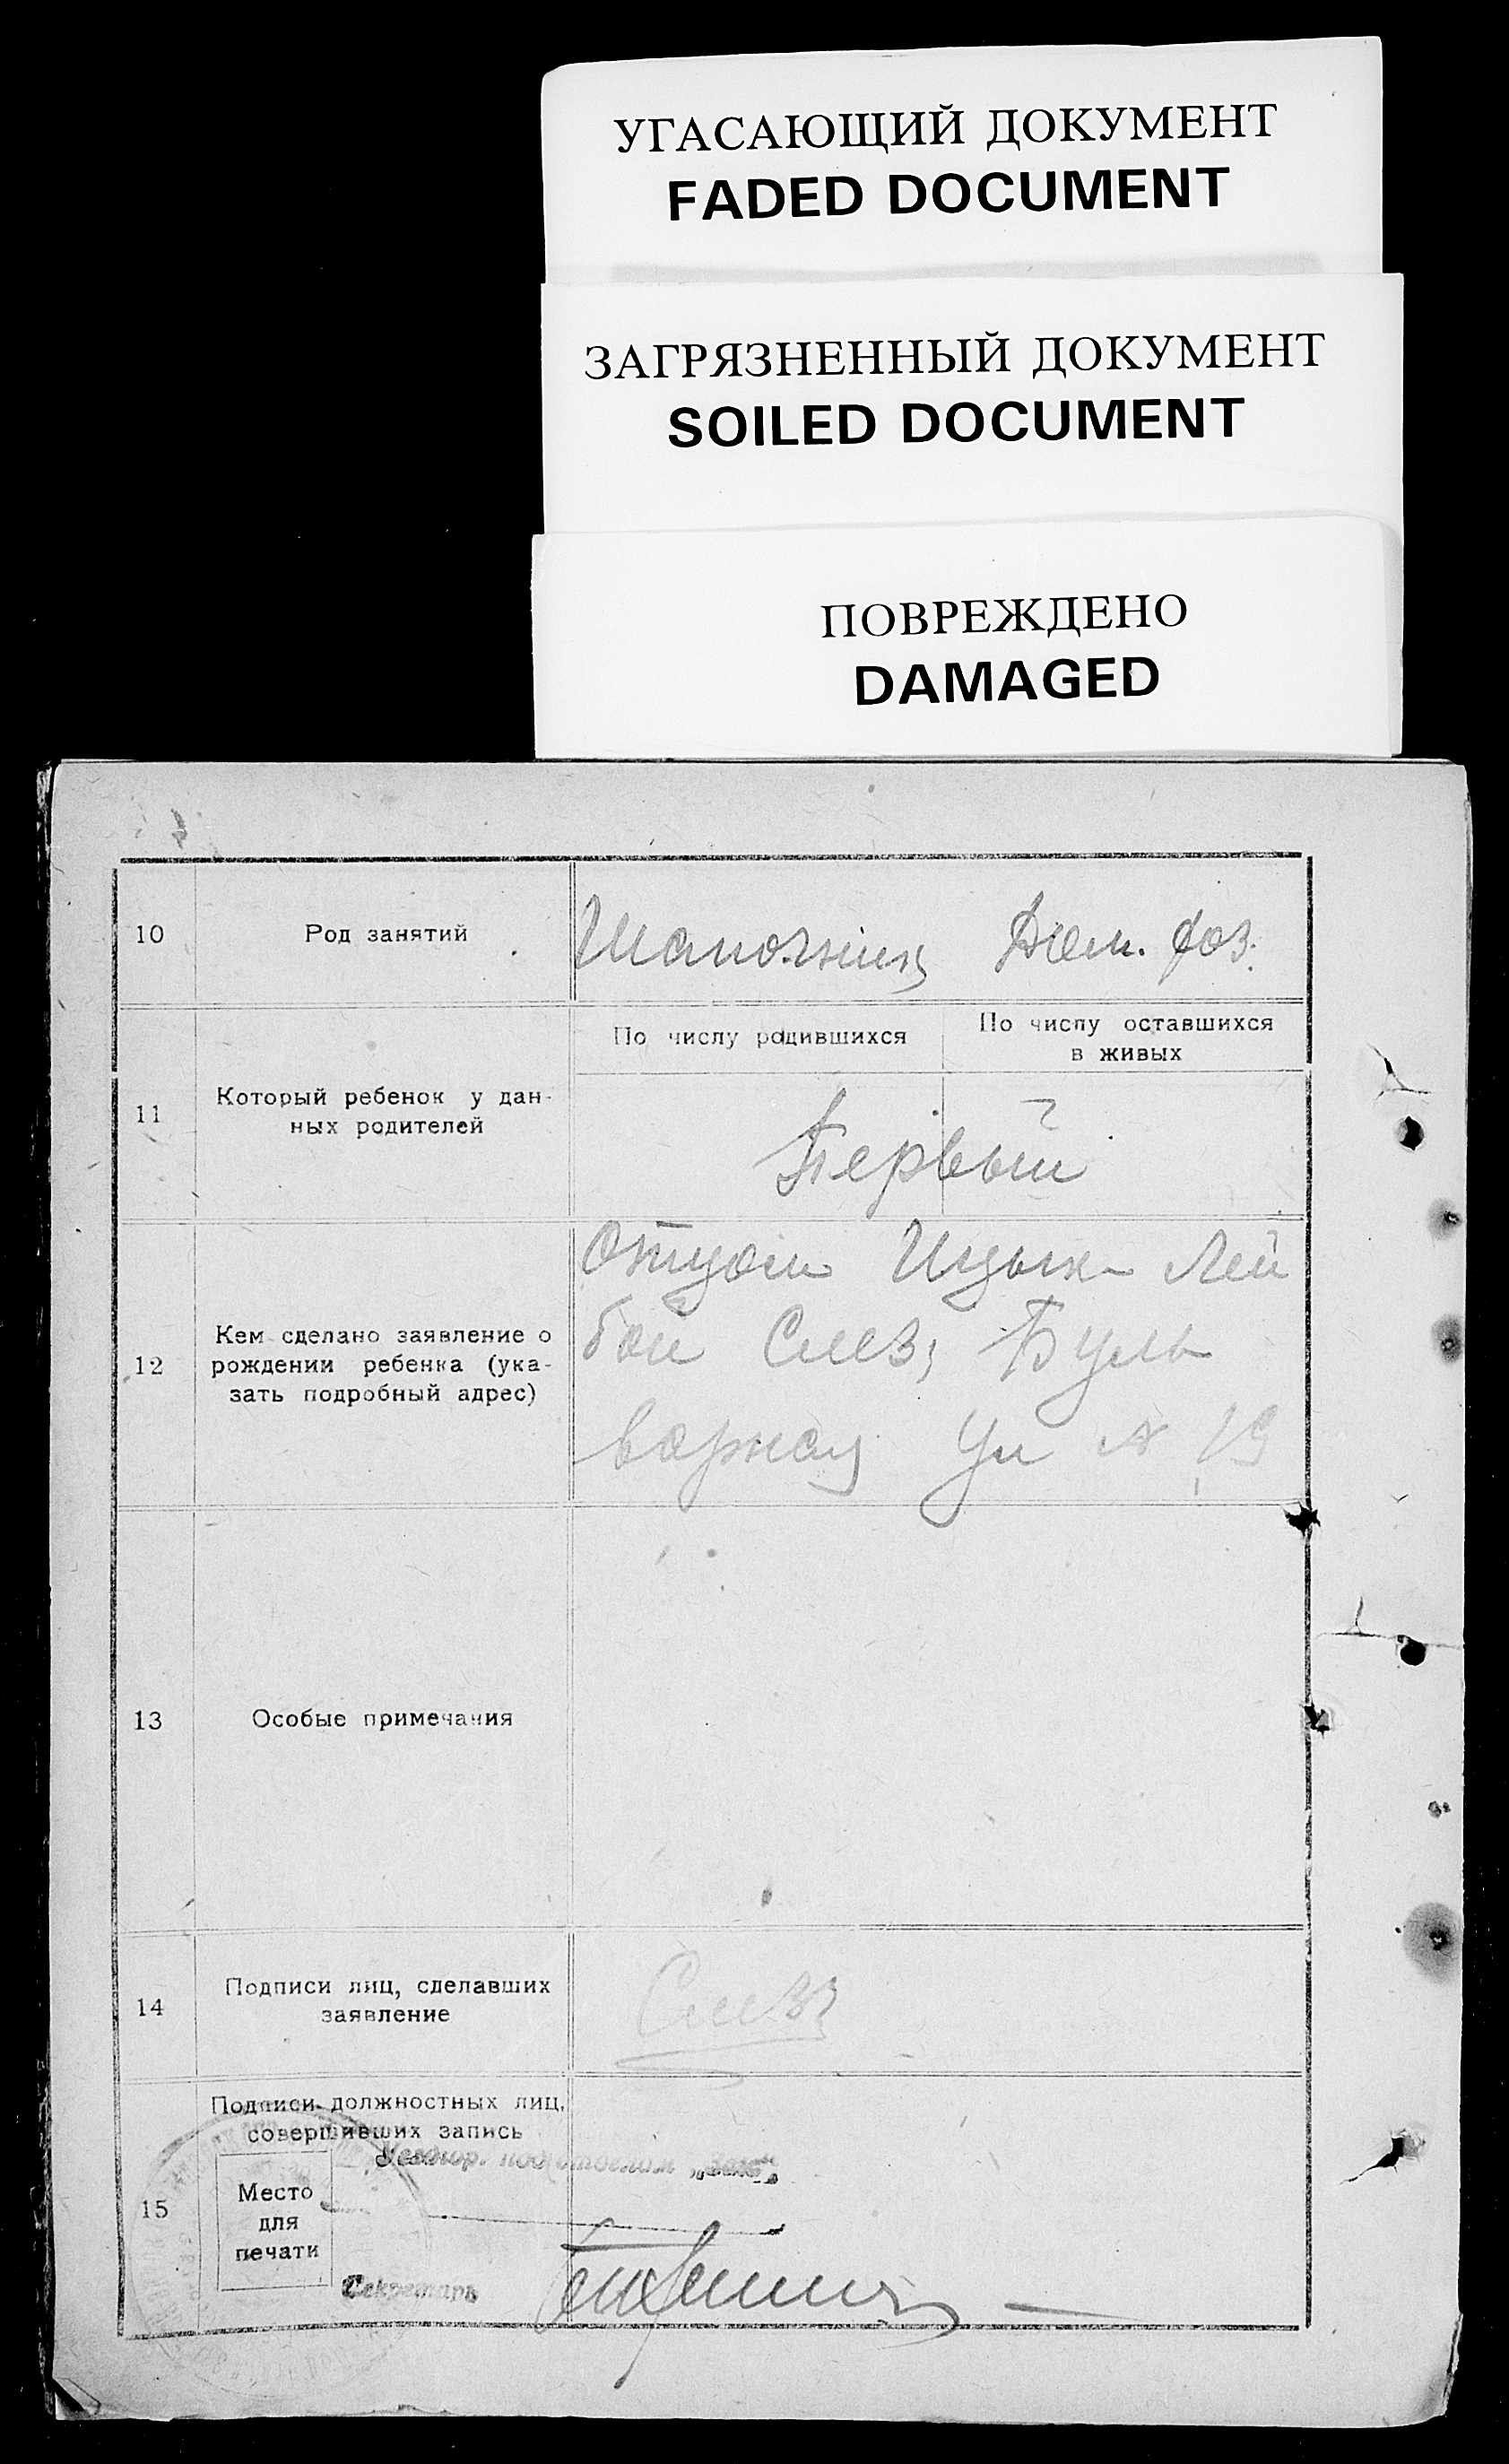 УГАСАЮЩИЙ ДОКУМЕНТ
FADED DOCUMENT
ЗАГРЯЗНЕННЫЙ ДОКУМЕНТ
SOILED DOCUMENT
ПОВРЕЖДЕНО
DAMAGED
10 Род занятий Шапочник Дом. хоз.
По числу родившихся
По числу оставшихся
в живых
11 Который ребенок у дан-
ных родителей
Первый
Отцом Ицык Лей
12 Кем сделано заявление о
рождении ребенка (ука-
зать подробный адрес)
бой Буль
варная ул № 19
13 Особые примечания
14 Подписи лиц, сделавших
заявление
Подписи должностных лиц,
совершивших запись
15 Место
для
печати
Секретарь